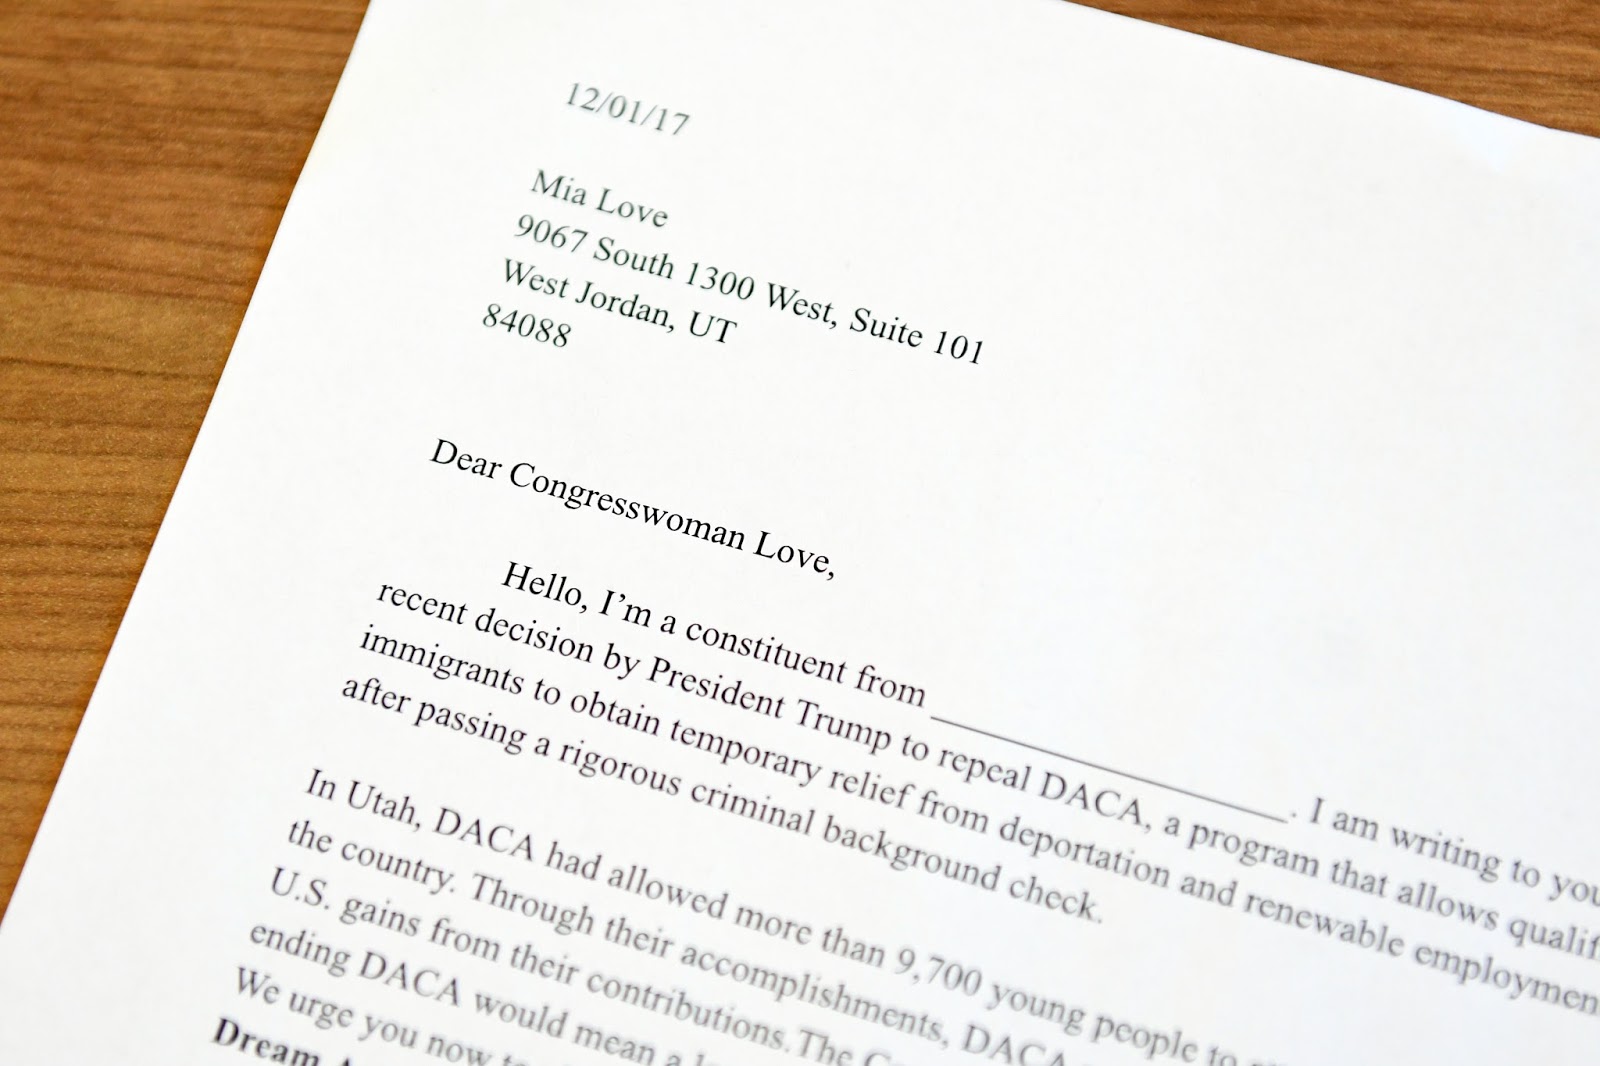 12/01/17
Mia Love
9067 South 1300 West, Suite 101
West Jordan, UT
84088
Dear Congresswoman Love,
Hello, I'm a constituent from ____________________. I am writing to you
recent decision by President Trump to repeal DACA, a program that allows
immigrants to obtain temporary relief from deportation and renewable
after passing a rigorous criminal background check.
In Utah, DACA had allowed more than 9,700 young people to
the country. Through their accomplishments, DACA
U.S. gains from their contributions. The
ending DACA would mean a
We urge you now
Dream